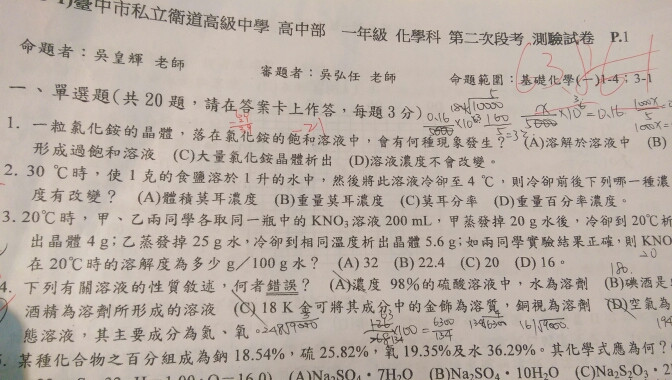 臺中市私立衛道高級中學 高中部 一年級 化學科 第二次段考 測驗試卷 P.1
命題者：吳皇輝 老師 審題者：吳弘任 老師 命題範圍：基礎化學(一)1-4；3-1
一、單選題(共20題，請在答案卡上作答，每題3分)
1. 一粒氯化銨的晶體，落在氯化銨的飽和溶液中，會有何種現象發生？ (A)溶解於溶液中 (B)
形成過飽和溶液 (C)大量氯化銨晶體析出 (D)溶液濃度不會改變。
2. 30 ℃時，使 1 克的食鹽溶於 1 升的水中，然後將此溶液冷卻至 4 ℃，則冷卻前後下列哪一種濃
度有改變？ (A)體積莫耳濃度 (B)重量莫耳濃度 (C)莫耳分率 (D)重量百分率濃度。
3. 20℃時，甲、乙兩同學各取同一瓶中的KNO₃溶液 200 mL，甲蒸發掉 20 g 水後，冷卻到 20℃析
出晶體 4 g；乙蒸發掉 25 g 水，冷卻到相同溫度析出晶體 5.6 g；如兩同學實驗結果正確，則 KNO
在 20℃時的溶解度為多少 g／100 g 水？ (A) 32 (B) 22.4 (C) 20 (D) 16。
4. 下列有關溶液的性質敘述，何者錯誤？ (A)濃度 98%的硫酸溶液中，水為溶劑 (B)碘酒是
酒精為溶劑所形成的溶液 (C) 18 K 金可將其成分中的金飾為溶質，銅視為溶劑 (D)空氣為
態溶液，其主要成分為氮、氧。
某種化合物之百分組成為鈉 18.54%，硫 25.82%，氧 19.35%及水 36.29%。其化學式應為何？
O=16.0) (A)Na₂SO₄・7H₂O (B)Na₂SO₄・10H₂O (C)Na₂S₂O₃・